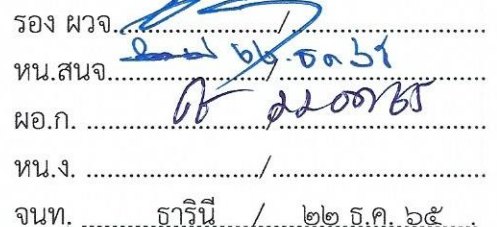 รอง ผวจ. ................../..................
หน.สนจ. ................../.................. ๒๒ ธค ๖๕
ผอ.ก. ................../..................
หน.ง. ................../..................
จนท. ธารินี / ๒๒ ธ.ค. ๖๕ .